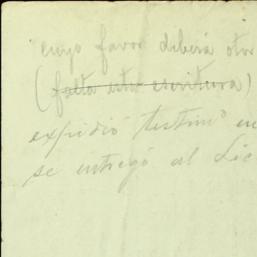 cuyo favor deberá otor
(falta esta escritura)
expidió testimº en
se entregó al Lic